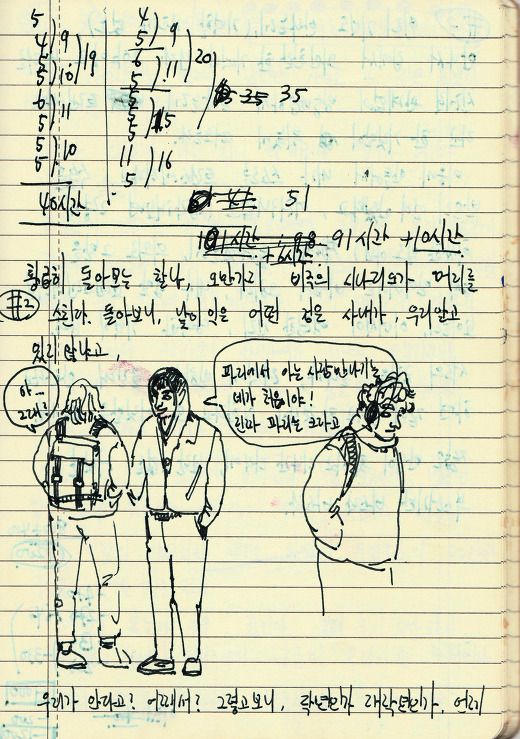 5
4
5
5
6
5
5
5
9
10
11
10
19
40시간
4
5
6
5
5
5
5
11
5
9
11
15
16
20
35
51
91시간 +10시간
+6시간
황급히 돌아보는 찰나, 오만가지 비극의 시나리오가 머리를
#2
스친다. 돌아보니, 낯이 익은 어떤 젊은 사내가, 우리 알고
있지 않냐고,
아... 그래?
파리에서 아는 사람 만나기는
네가 처음이야!
진짜 파리는 크다고
우리가 안다고? 어째서? 그렇고보니, 작년인가 재작년인가, 언제